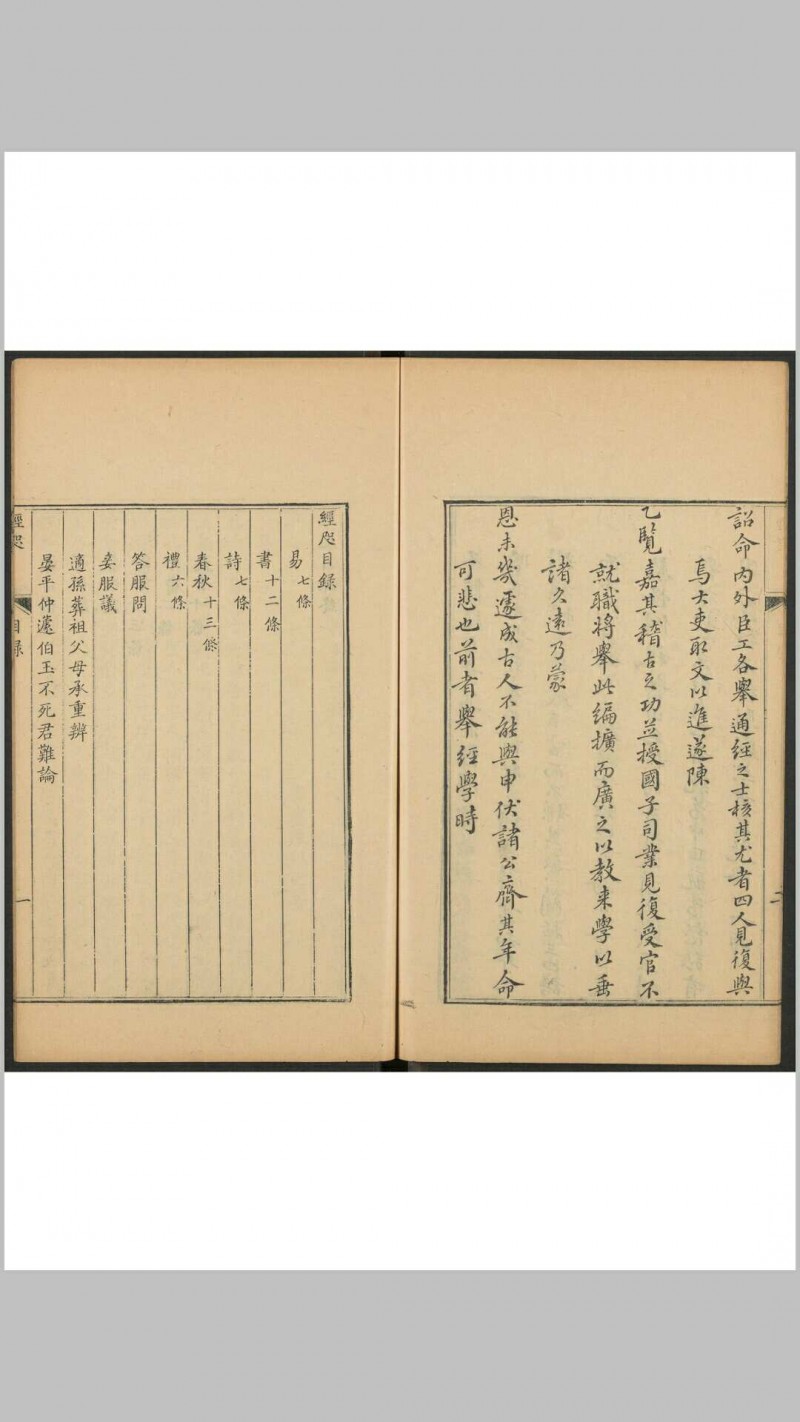 詔命內外臣工各舉通經之士核其尤者四人見復與
焉大吏取文以進遂陳
乙覽嘉其稽古之功並授國子司業見復受官不
就職將舉此編擴而廣之以教來學以垂
諸久遠乃蒙
恩未幾遽成古人不能與申伏諸公齊其年命
可悲也前者舉經學時
二
經咫目錄
易七條
書十二條
詩七條
春秋十三條
禮六條
答服問
妾服議
適孫葬祖父母承重辨
晏平仲蘧伯玉不死君難論
經咫
目錄
一